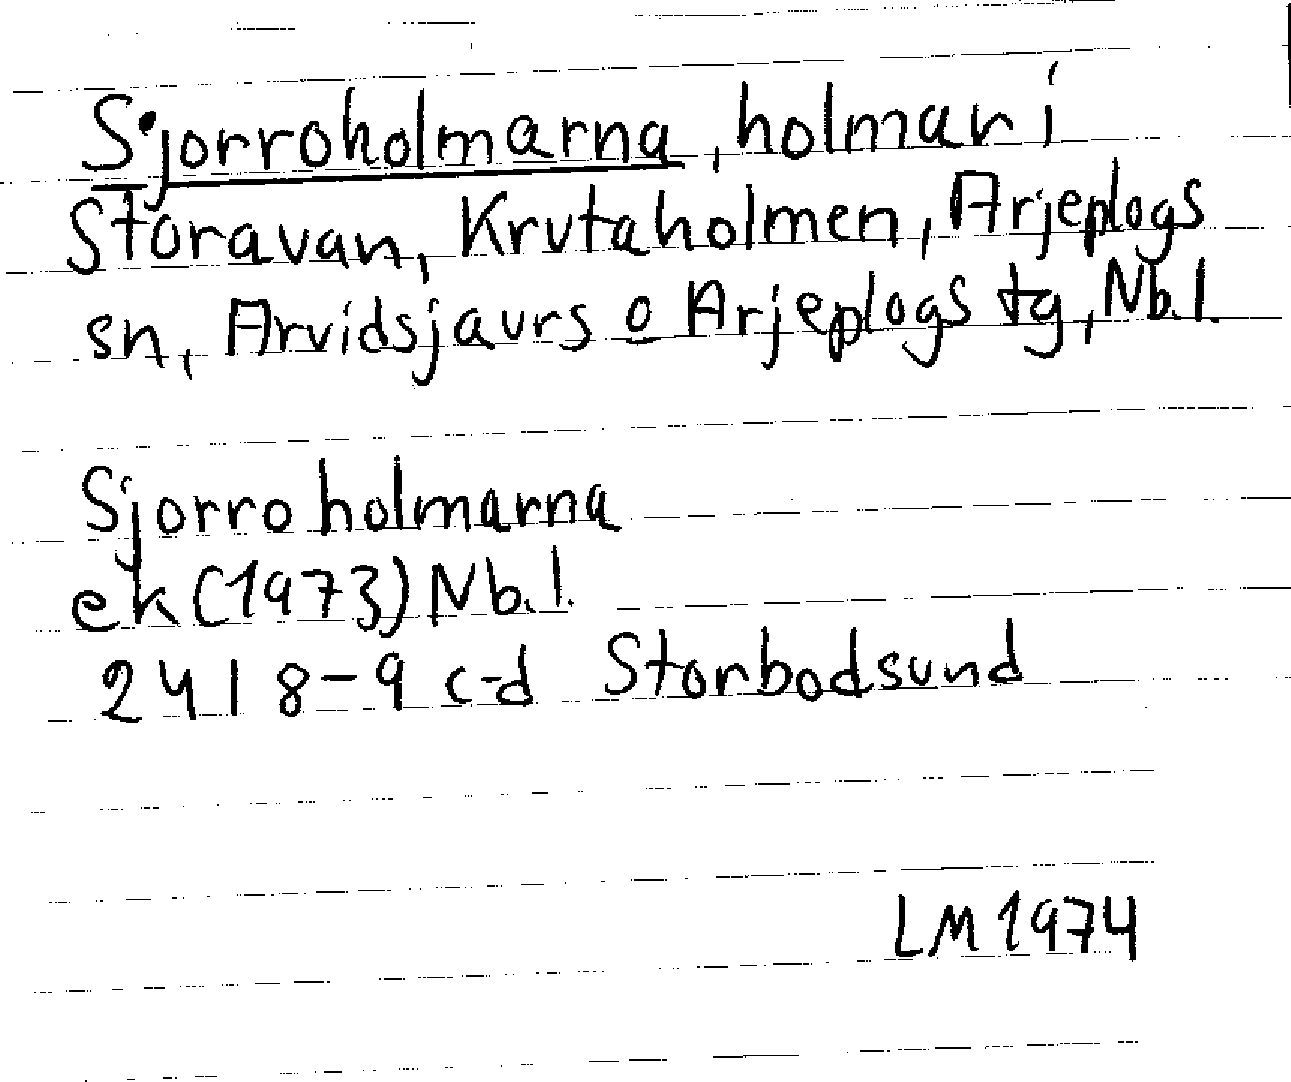 Sjorroholmarna, holmar i
Storavan, Krutaholmen, Arjeplogs
sn, Arvidsjaurs o Arjeplogs tg, Nb. l.
Sjorroholmarna
ek (1973) Nb. l.
24 I 8-9 c-d Storbodsund
LM 1974